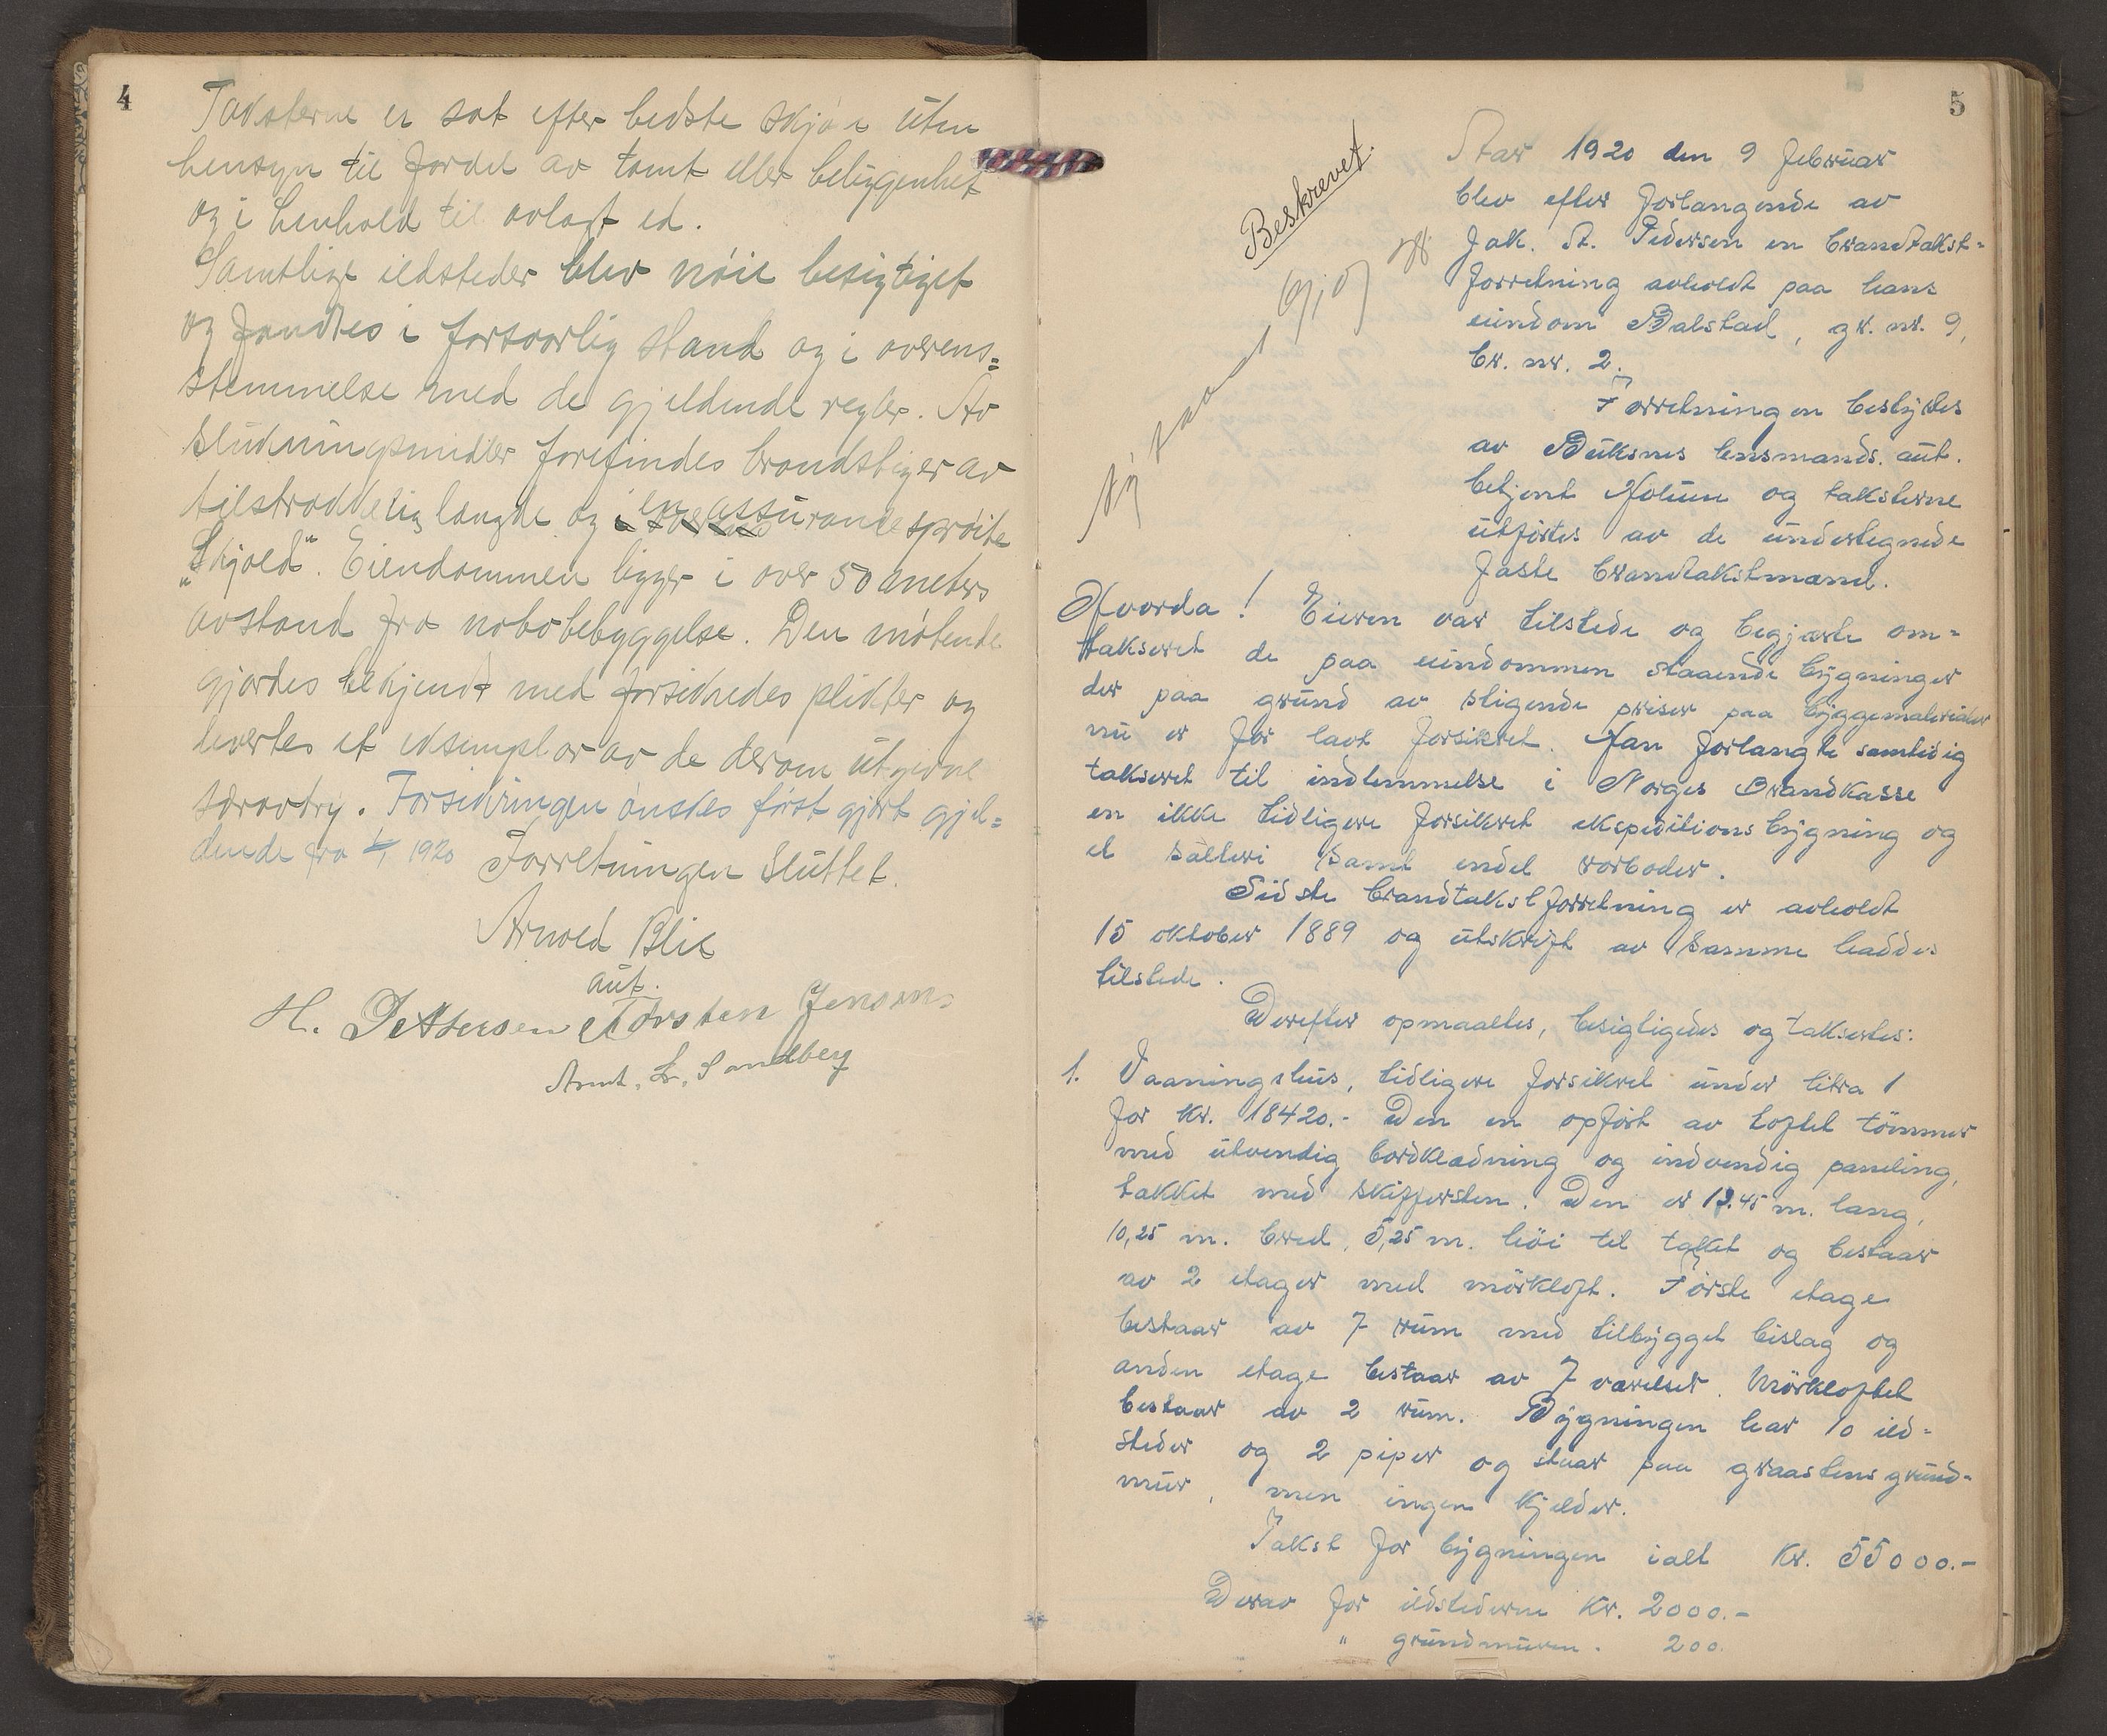 4
Taksterne er sat efter bedste skjøn uten
hensyn til fordel av tomt eller beliggenhet
og i henhold til avlagt ed.
Samtlige ildsteder blev nöie besigtiget
og fandtes i forsvarlig stand og i overens=
stemmelse med de gjeldende regler. Av
slukningsmidler forefindes brandstiger av
tilstrækkelig længde og en assurancesprøite
"Skjold". Eiendommen ligger i over 50 meters
avstand fra nabobebyggelse. Den møtende
gjordes bekjendt med forsikredes plikter og
levertes et eksemplar av de derom utgivne
særavtry. Forsikringen ønskes først gjort gjel=
dende fra 1920 Forretningen sluttet.
Arnold Blix
aut.
H. Pettersen Torsten Jensen
Arnt. L. Sandberg
5
Beskrevet.
Aar 1920 den 9 februar
blev efter forlangende av
Jak. A. Pedersen en brandtakst=
forretning avholdt paa hans
eiendom Balstad, gr. nr. 9,
br. nr. 2.
Forretningen bestyrtes
av Buksnes lensmands. aut.
betjent Nolum og taksterne
utførtes av de undertegnede
faste brandtakstmænd.
Hvorda! Eieren var tilstede og begjærte om=
taksert de paa eiendommen staaende bygninger
der paa grund av stigende priser paa byggematerialer
nu er for lavt forsikret. Han forlangte samtidig
taksert til indlemmelse i Norges Brandkasse
en ikke tidligere forsikret ekspeditionsbygning og
et salteri samt endel rorboder.
Sidste brandtakstforretning er avholdt
15 oktober 1889 og utskrift av samme haddes
tilstede.
Derefter opmaaltes, besigtigedes og taksertes:
1. Vaaningshus, tidligere forsikret under litra 1
for kr. 18420.- Den en opført av loftet tømmer
med utvendig bordklædning og indvendig paneling,
takket med skiffersten. Den er 19.45 m. lang,
10,25 m. bred, 5,25 m. høi til taket og bestaar
av 2 etager med mørkloft. Første etage
bestaar av 7 rum med tilbygget bislag og
anden etage bestaar av 7 værelser. Mørkloftet
bestaar av 2 rum. Bygningen har 10 ild=
steder og 2 piper og staar paa graastens grund=
mur, men ingen kjelder.
Takst for bygningen ialt kr. 55000.-
Derav for ildstederne kr. 2000.-
" grundmuren. 200.